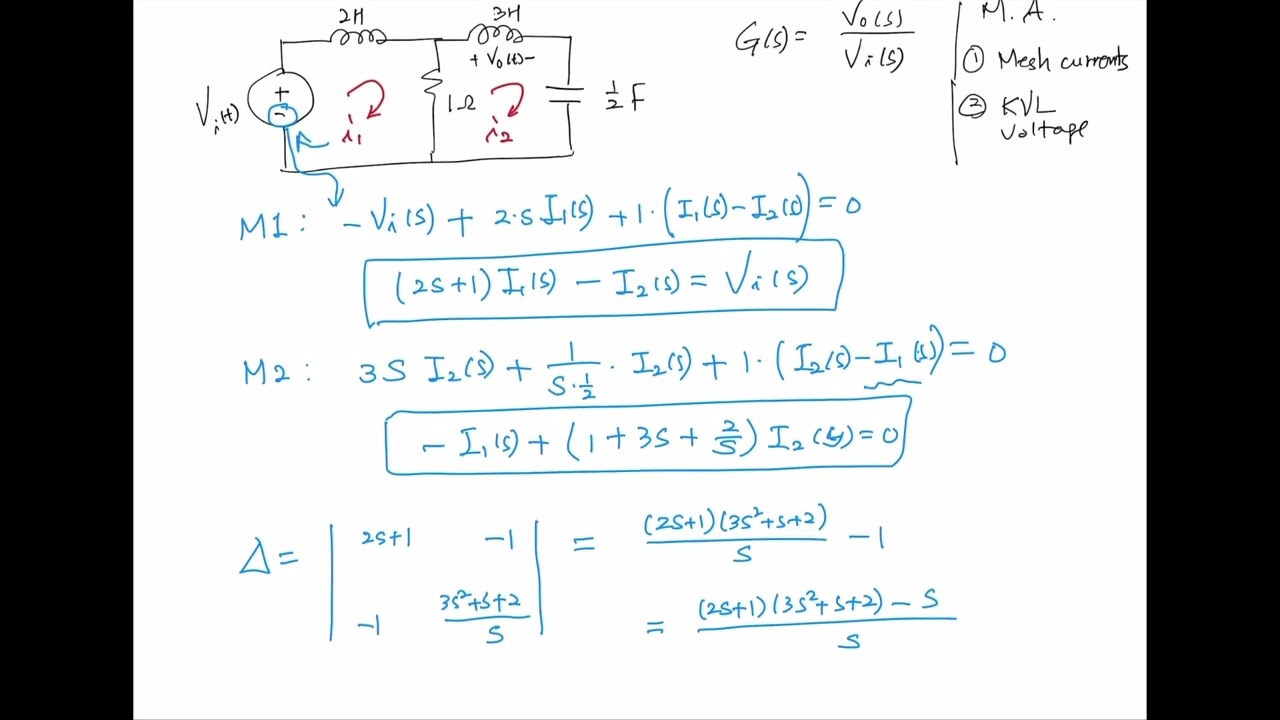 2H 3H
+ Vo(t) -
Vi(t) + - i1 1Ω i2 1/2 F
G(s) = Vo(s)/Vi(s)
M.A.
① Mesh currents
② KVL
voltage
M1: -Vi(s) + 2·s I1(s) + 1·(I1(s) - I2(s)) = 0
(2s+1) I1(s) - I2(s) = Vi(s)
M2: 3s I2(s) + 1/(s·1/2) · I2(s) + 1·(I2(s) - I1(s)) = 0
- I1(s) + (1 + 3s + 2/s) I2(s) = 0
Δ = | 2s+1 -1 | = (2s+1)(3s²+s+2)/s - 1
| -1 (3s²+s+2)/s | = ((2s+1)(3s²+s+2) - s)/s